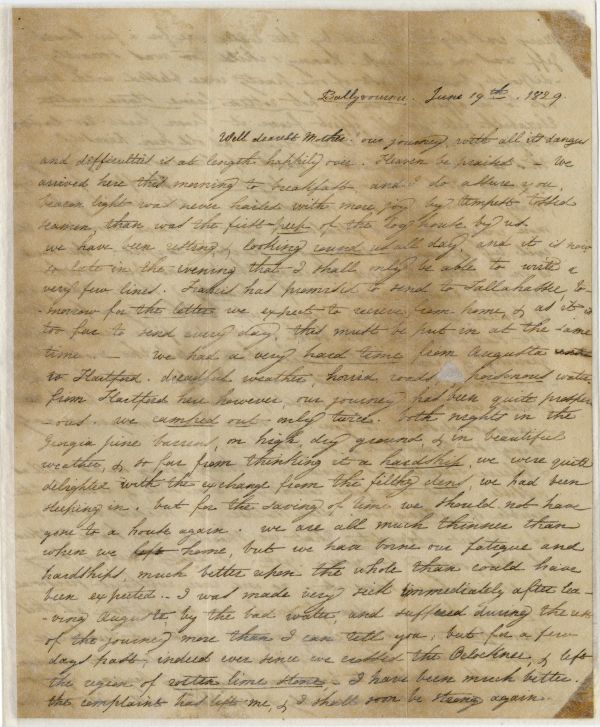 Ballyvourne. June 19th. 1829.
Well dearest Mother, our journey, with all its dangers
and difficulties is at length happily over. Heaven be praised. - We
arrived here this morning to breakfast and I do assure you,
beacon light was never hailed with more joy by tempest tossed
seamen, than was the first peep of the log house by us.
we have been resting, & looking round us all day, and it is now
so late in the evening that I shall only be able to write a
very few lines. has promised to send to Tallahassee to
-morrow for the letters we expect to receive from home, & as it is
too far to send every day, this must be put in at the same
time. - we had a very hard time from Augusta
to Hartford. dreadful weather, horrid roads & poisonous water.
from Hartford here however, our journey has been quite prosper
-ous. we camped out only twice. both nights in the
Georgia pine barrens, on high, dry ground, & in beautiful
weather, & so far from thinking it a hardship, we were quite
delighted with the exchange from the filthy dens, we had been
sleeping in. but for the saving of time we should not have
gone to a house again. we are all much thinner than
when we left home, but we have borne our fatigue and
hardships, much better upon the whole than could have
been expected. - I was made very sick immediately after lea-
-ving Augusta by the bad water, and suffered during the rest
of the journey more than I can tell you, but for a few
days past, indeed ever since we crossed the Oclocknee, & left
the region of rotten lime stone - I have been much better.
the complaint has left me, & I shall soon be strong again.